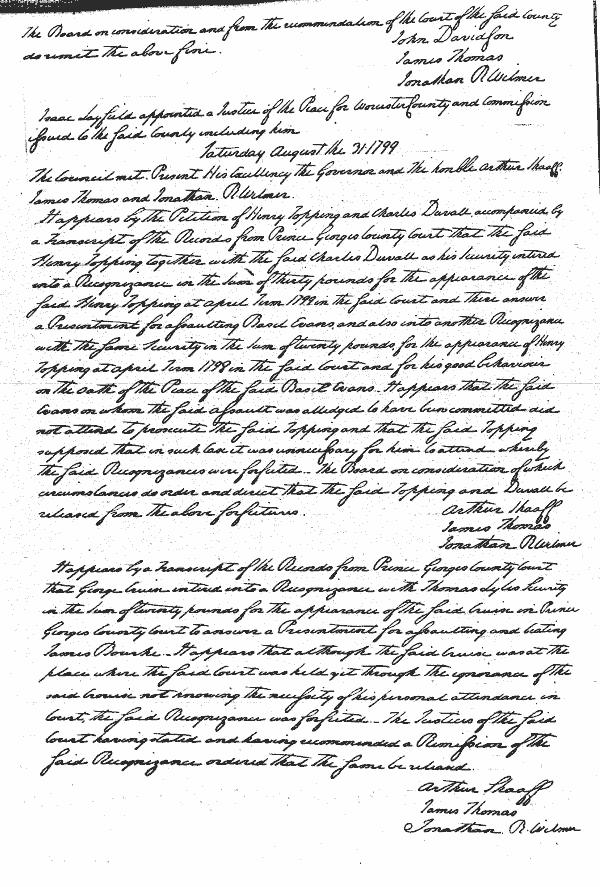 The Board on consideration and from the recommendation of the Court of the said County
do remit the above fine.
John Davidson
James Thomas
Jonathan R Wilmer
Isaac Layfield appointed a Justice of the Peace for Worcester County and Commission
issued to the said County including him
Saturday August the 31 1799
The Council met. Present His Excellency the Governor and the honble Arthur Shaaff.
James Thomas and Jonathan R Wilmer.
It appears by the Petition of Henry Topping and Charles Duvall, accompanied by
a Transcript of the Records from Prince Georges County Court that the said
Henry Topping together with the said Charles Duvall as his security entered
into a Recognizance in the sum of thirty pounds for the appearance of the
said Henry Topping at april Term 1799 in the said Court and there answer
a Presentment for assaulting Basil Evans, and also into another Recognizance
with the same security in the sum of twenty pounds, for the appearance of Henry
Topping at april Term 1798 in the said Court and for his good behaviour
on the oath of the Peace of the said Basil Evans. It appears that the said
Evans on whom the said assault was alledged to have been committed did
not attend to prosecute the said Topping and that the said Topping
supposed that in such Case it was unnecessary for him to attend whereby
the said Recognizances were forfeited. The Board on consideration of which
circumstances do order and direct that the said Topping and Duvall be
released from the above forfeitures.
Arthur Shaaff
James Thomas
Jonathan R Wilmer
It appears by a Transcript of the Records from Prince Georges County Court
that George Cruise entered into a Recognizance with Thomas Lyles Security
in the sum of twenty pounds for the appearance of the said Cruise in Prince
Georges County Court to answer a Presentment for assaulting and beating
James Bourke. It appears that although the said Cruise was at the
place where the said Court was held yet through the ignorance of the
said Crouise not knowing the necessity of his personal attendance in
Court, the said Recognizance was forfeited. The Justices of the said
Court having stated and having recommended a Remission of the
said Recognizance ordered that the same be released.
Arthur Shaaff
James Thomas
Jonathan R. Wilmer